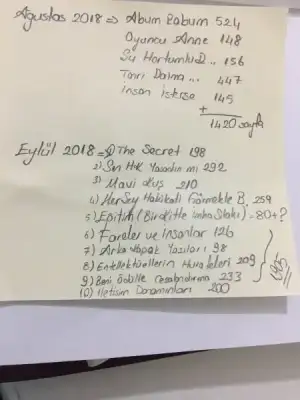 Ağustos 2018 => Abum Rabum 524
Oyuncu Anne 148
Su Hortumlu .. 156
Tanrı Daima ... 447
İnsan İsterse 145
+
1420 sayfa
Eylül 2018 => 1) The Secret 198
2) Sen Hiç Yaşadın mı 292
3) Mavi Kuş 210
4) Herşey Hakikati Görmekle B. 259
5) Epitih (Bir Kitle İmha Silahı) - 80+?
6) Fareler ve İnsanlar 126
7) Arka Kapak Yazıları 98
8) Entellektüellerin Hurafeleri 209
9) Beni Ödülle Cezalandırma 233
10) İletişim Donanımları 200